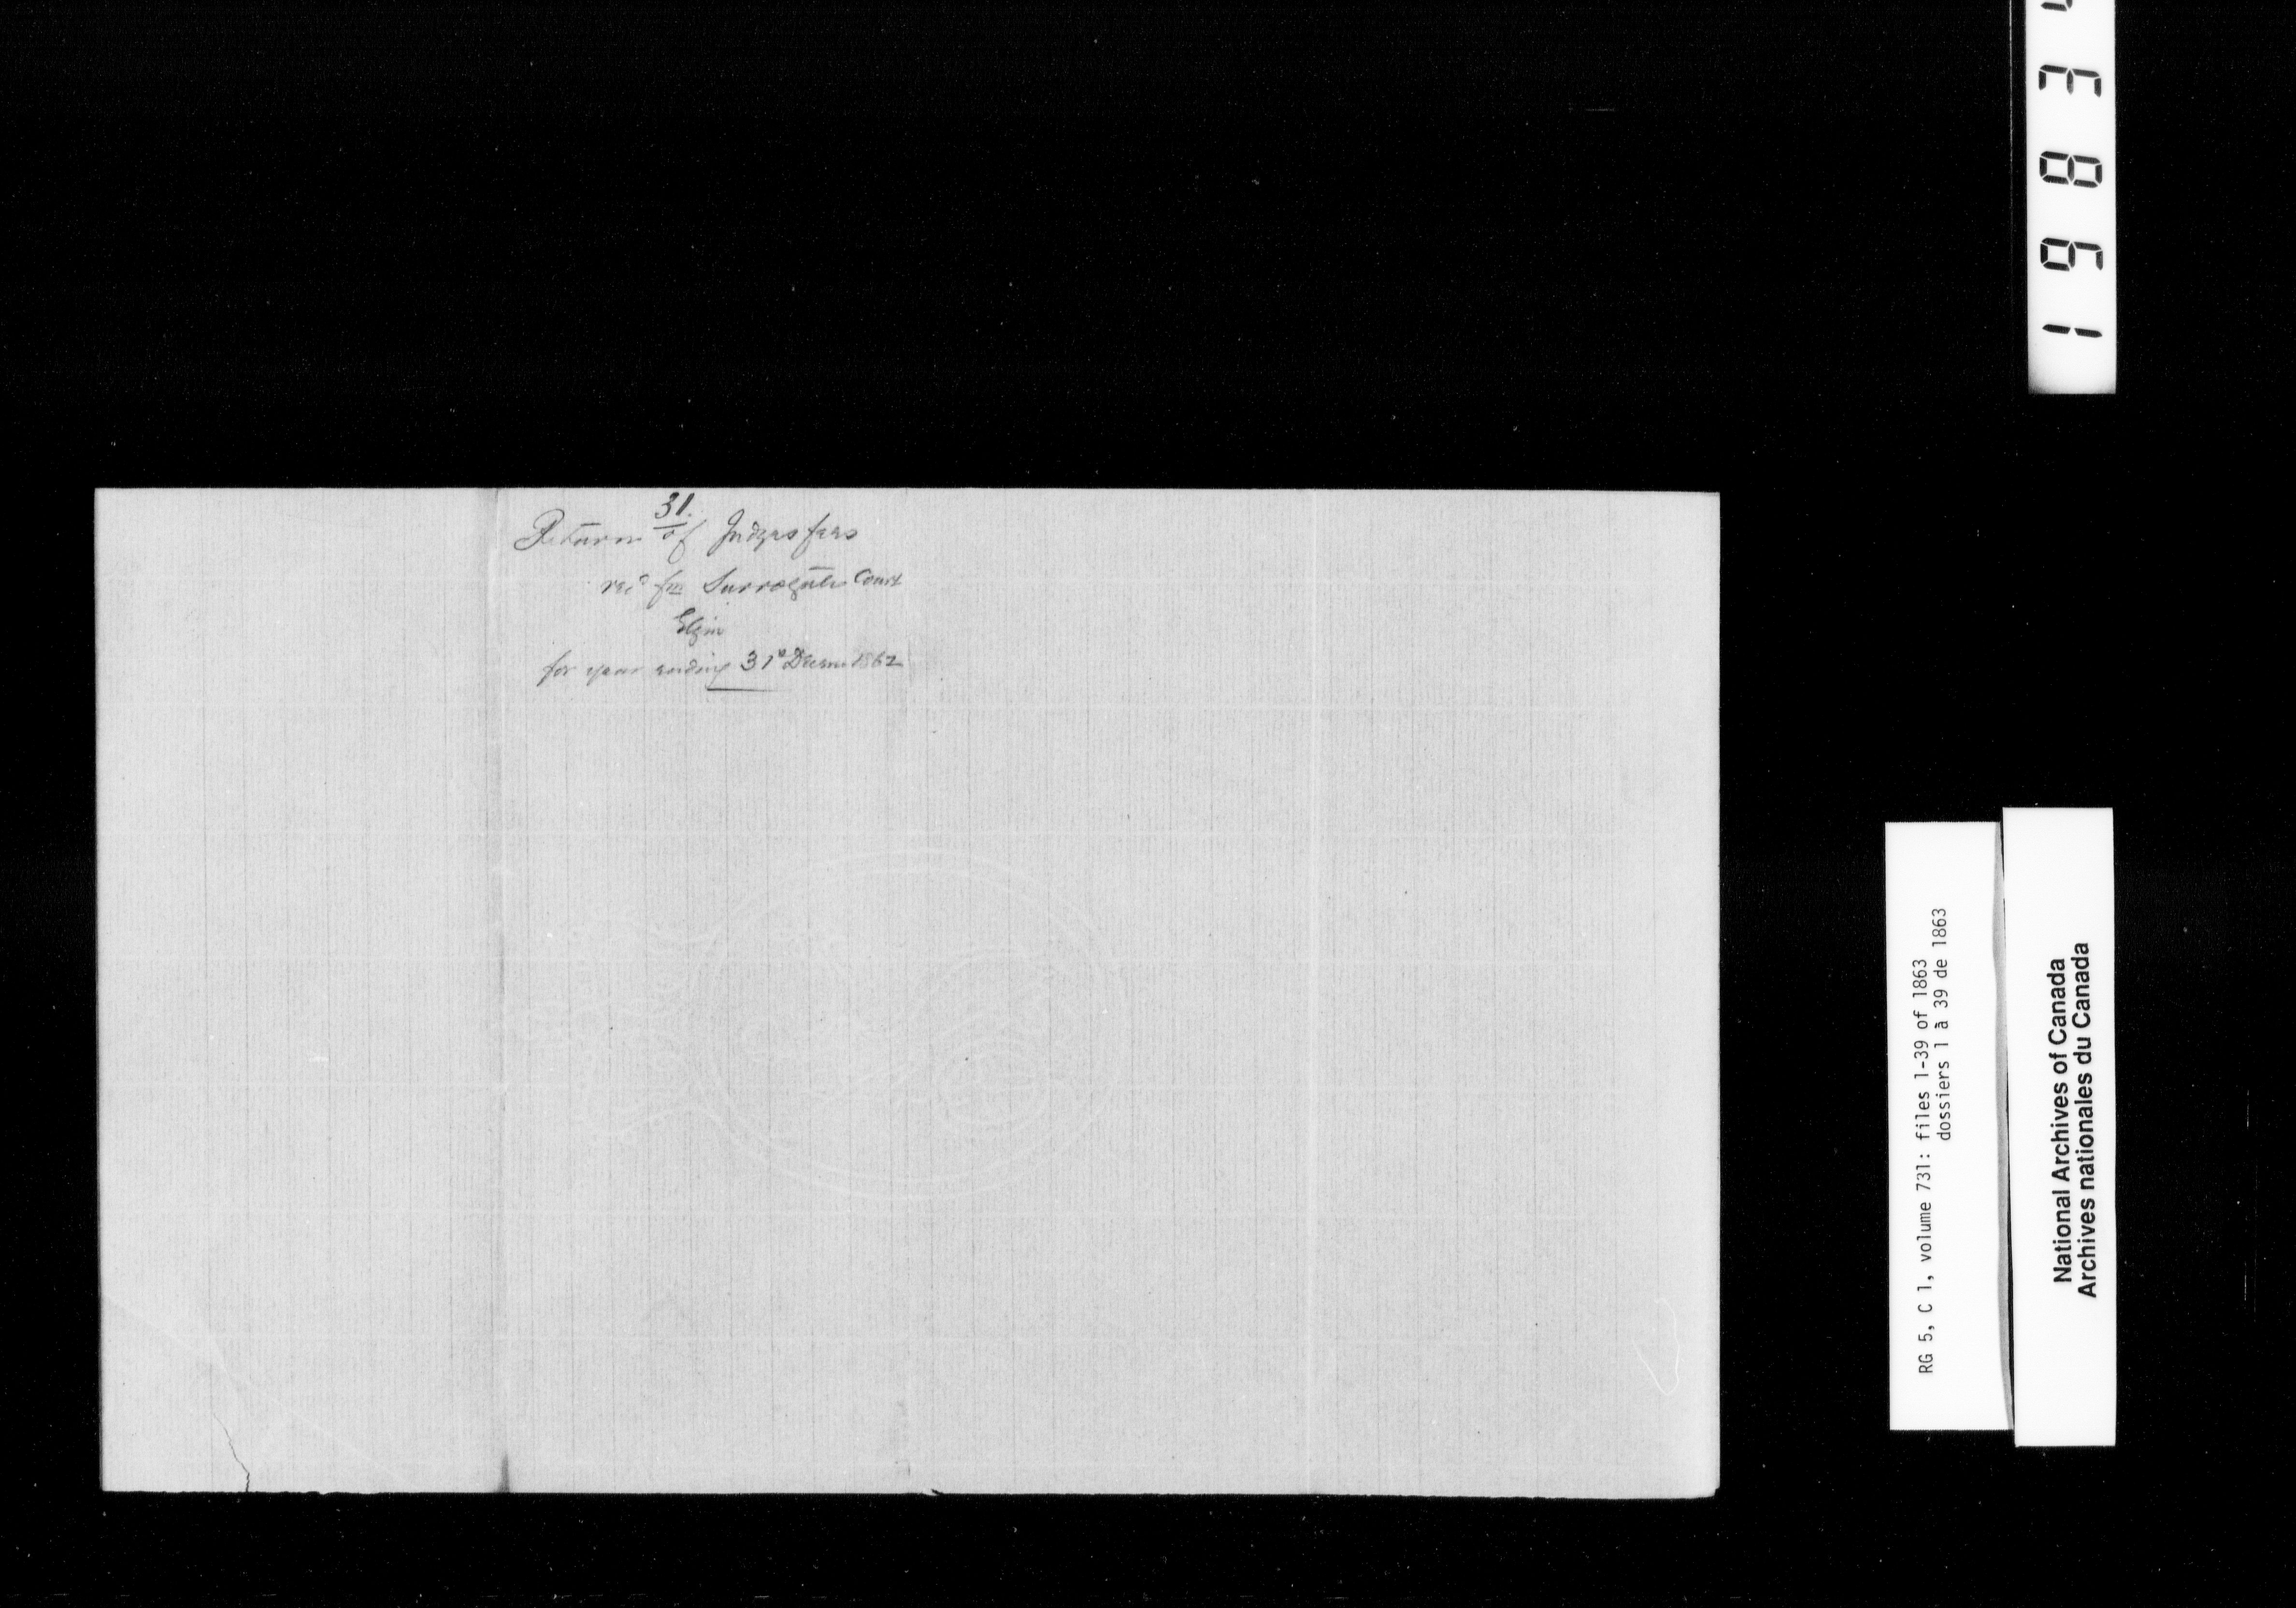 31.
Return of Judges fees
recd fm Surrogate Court
Elgin
for year ending 31st Decem 1862
1 9 8 3
RG 5, C 1, volume 731: files 1-39 of 1863
dossiers 1 à 39 de 1863
National Archives of Canada
Archives nationales du Canada